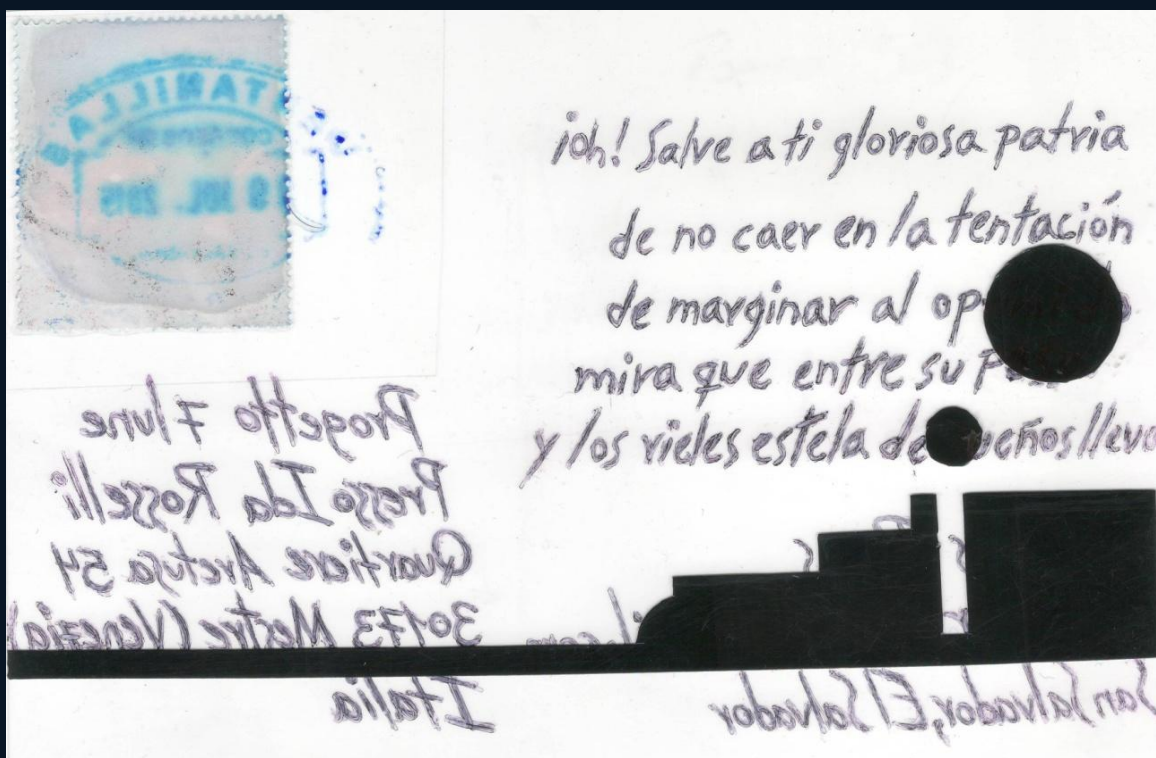 ¡oh! Salve a ti gloriosa patria
de no caer en la tentación
de marginar al
mira que entre su
y los rieles estela de sueños lleva
JUL. 2015
Progetto 7 lune
Presso Ida Rosselli
Quartiere Aretusa 54
30173 Mestre (Venezia)
Italia
San Salvador, El Salvador